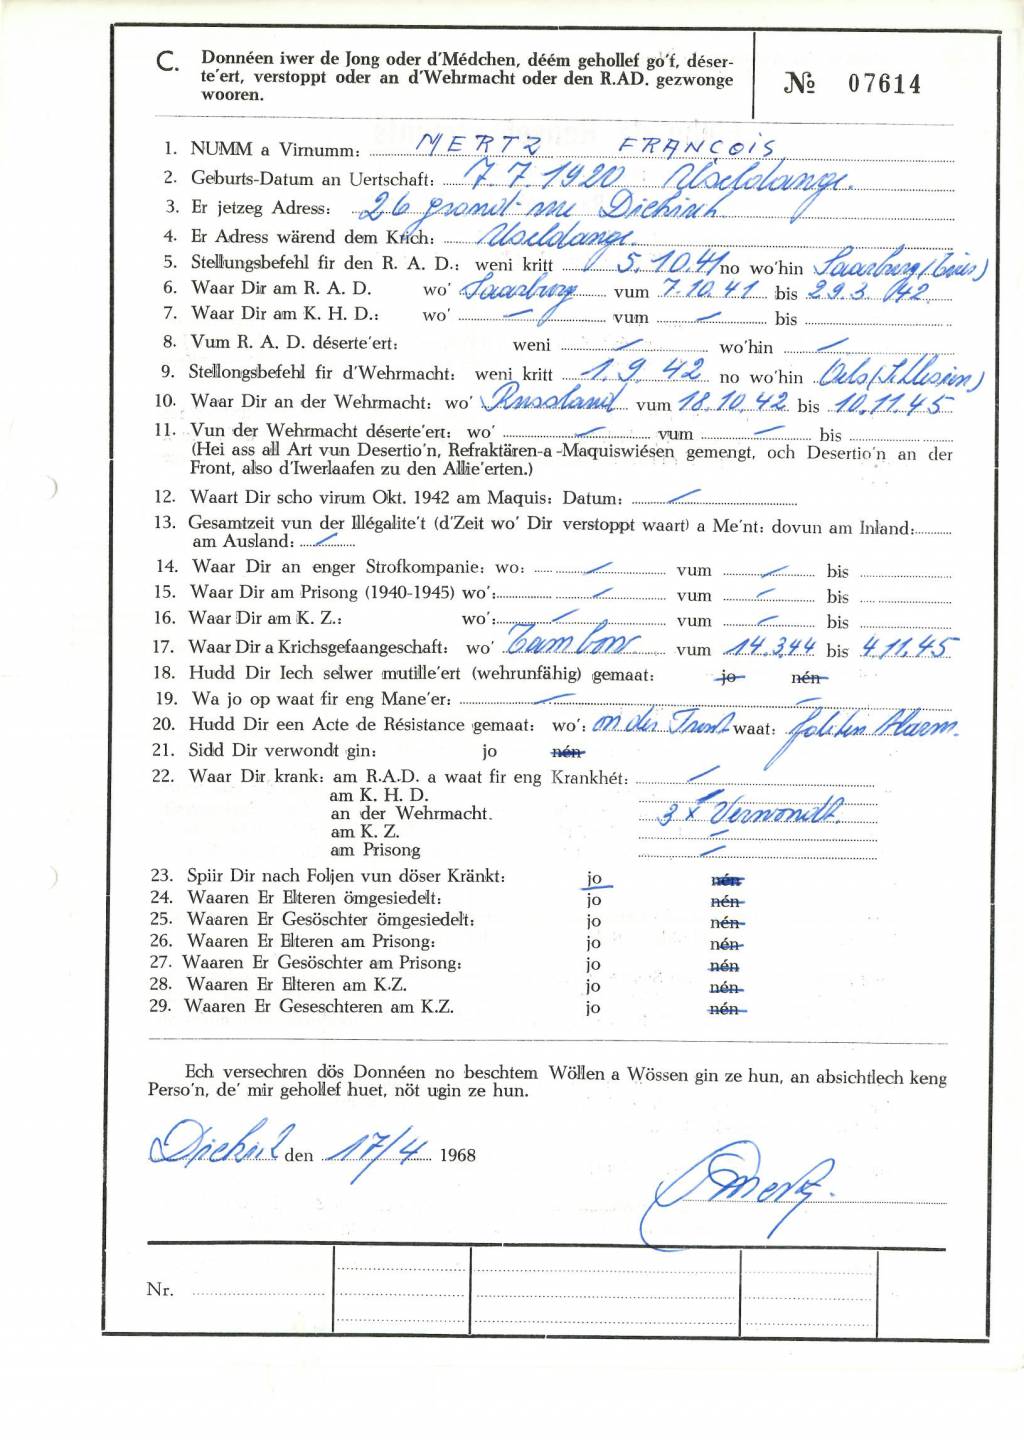 C. Donnéen iwer de Jong oder d'Médchen, déém gehollef go'f, déser-
te'ert, verstoppt oder an d'Wehrmacht oder den R.AD. gezwonge
wooren.
№ 07614
1. NUMM a Virnumm: MERTZ FRANÇOIS
2. Geburts-Datum an Uertschaft: 7.7.1920 Useldange.
3. Er jetzeg Adress: 26 grand-rue Diekirch
4. Er Adress wärend dem Krich: Useldange
5. Stellungsbefehl fir den R. A. D.: weni kritt 5.10.41 no wo'hin Saarburg (Trier)
6. Waar Dir am R. A. D. wo' Saarburg vum 7.10.41 bis 29.3.42
7. Waar Dir am K. H. D.: wo' — vum — bis
8. Vum R. A. D. déserte'ert: weni — wo'hin —
9. Stellongsbefehl fir d'Wehrmacht: weni kritt 1.9.42 no wo'hin Oels (Schlesien)
10. Waar Dir an der Wehrmacht: wo' Russland vum 18.10.42 bis 10.11.45
11. Vun der Wehrmacht déserte'ert: wo' — vum — bis
(Hei ass all Art vun Desertio'n, Refraktären-a-Maquiswiésen gemengt, och Desertio'n an der
Front, also d'Iwerlaafen zu den Allie'erten.)
12. Waart Dir scho virum Okt. 1942 am Maquis: Datum: —
13. Gesamtzeit vun der Illégalite't (d'Zeit wo' Dir verstoppt waart) a Me'nt: dovun am Inland:
am Ausland: —
14. Waar Dir an enger Strofkompanie: wo: — vum — bis
15. Waar Dir am Prisong (1940-1945) wo': — vum — bis
16. Waar Dir am K. Z.: wo': — vum — bis
17. Waar Dir a Krichsgefaangeschaft: wo' Tambow vum 14.3.44 bis 4.11.45
18. Hudd Dir Iech selwer mutille'ert (wehrunfähig) gemaat: jo nén
19. Wa jo op waat fir eng Mane'er: — —
20. Hudd Dir een Acte de Résistance gemaat: wo': an der Front waat: Alarm.
21. Sidd Dir verwondt gin: jo nén
22. Waar Dir krank: am R.A.D. a waat fir eng Krankhét: —
am K. H. D. —
an der Wehrmacht. 3 x Verwondt.
am K. Z. —
am Prisong —
23. Spiir Dir nach Foljen vun döser Kränkt: jo nén
24. Waaren Er Elteren ömgesiedelt: jo nén
25. Waaren Er Gesöschter ömgesiedelt: jo nén
26. Waaren Er Elteren am Prisong: jo nén
27. Waaren Er Gesöschter am Prisong: jo nén
28. Waaren Er Elteren am K.Z. jo nén
29. Waaren Er Geseschteren am K.Z. jo nén
Ech versechren dös Donnéen no beschtem Wöllen a Wössen gin ze hun, an absichtlech keng
Perso'n, de' mir gehollef huet, nöt ugin ze hun.
Diekirch den 17/4 1968
Mertz.
Nr.